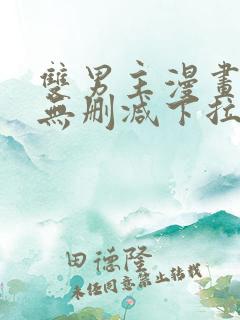 雙男主漫畫
無刪減下拉
田德隆
未任同意禁止转载